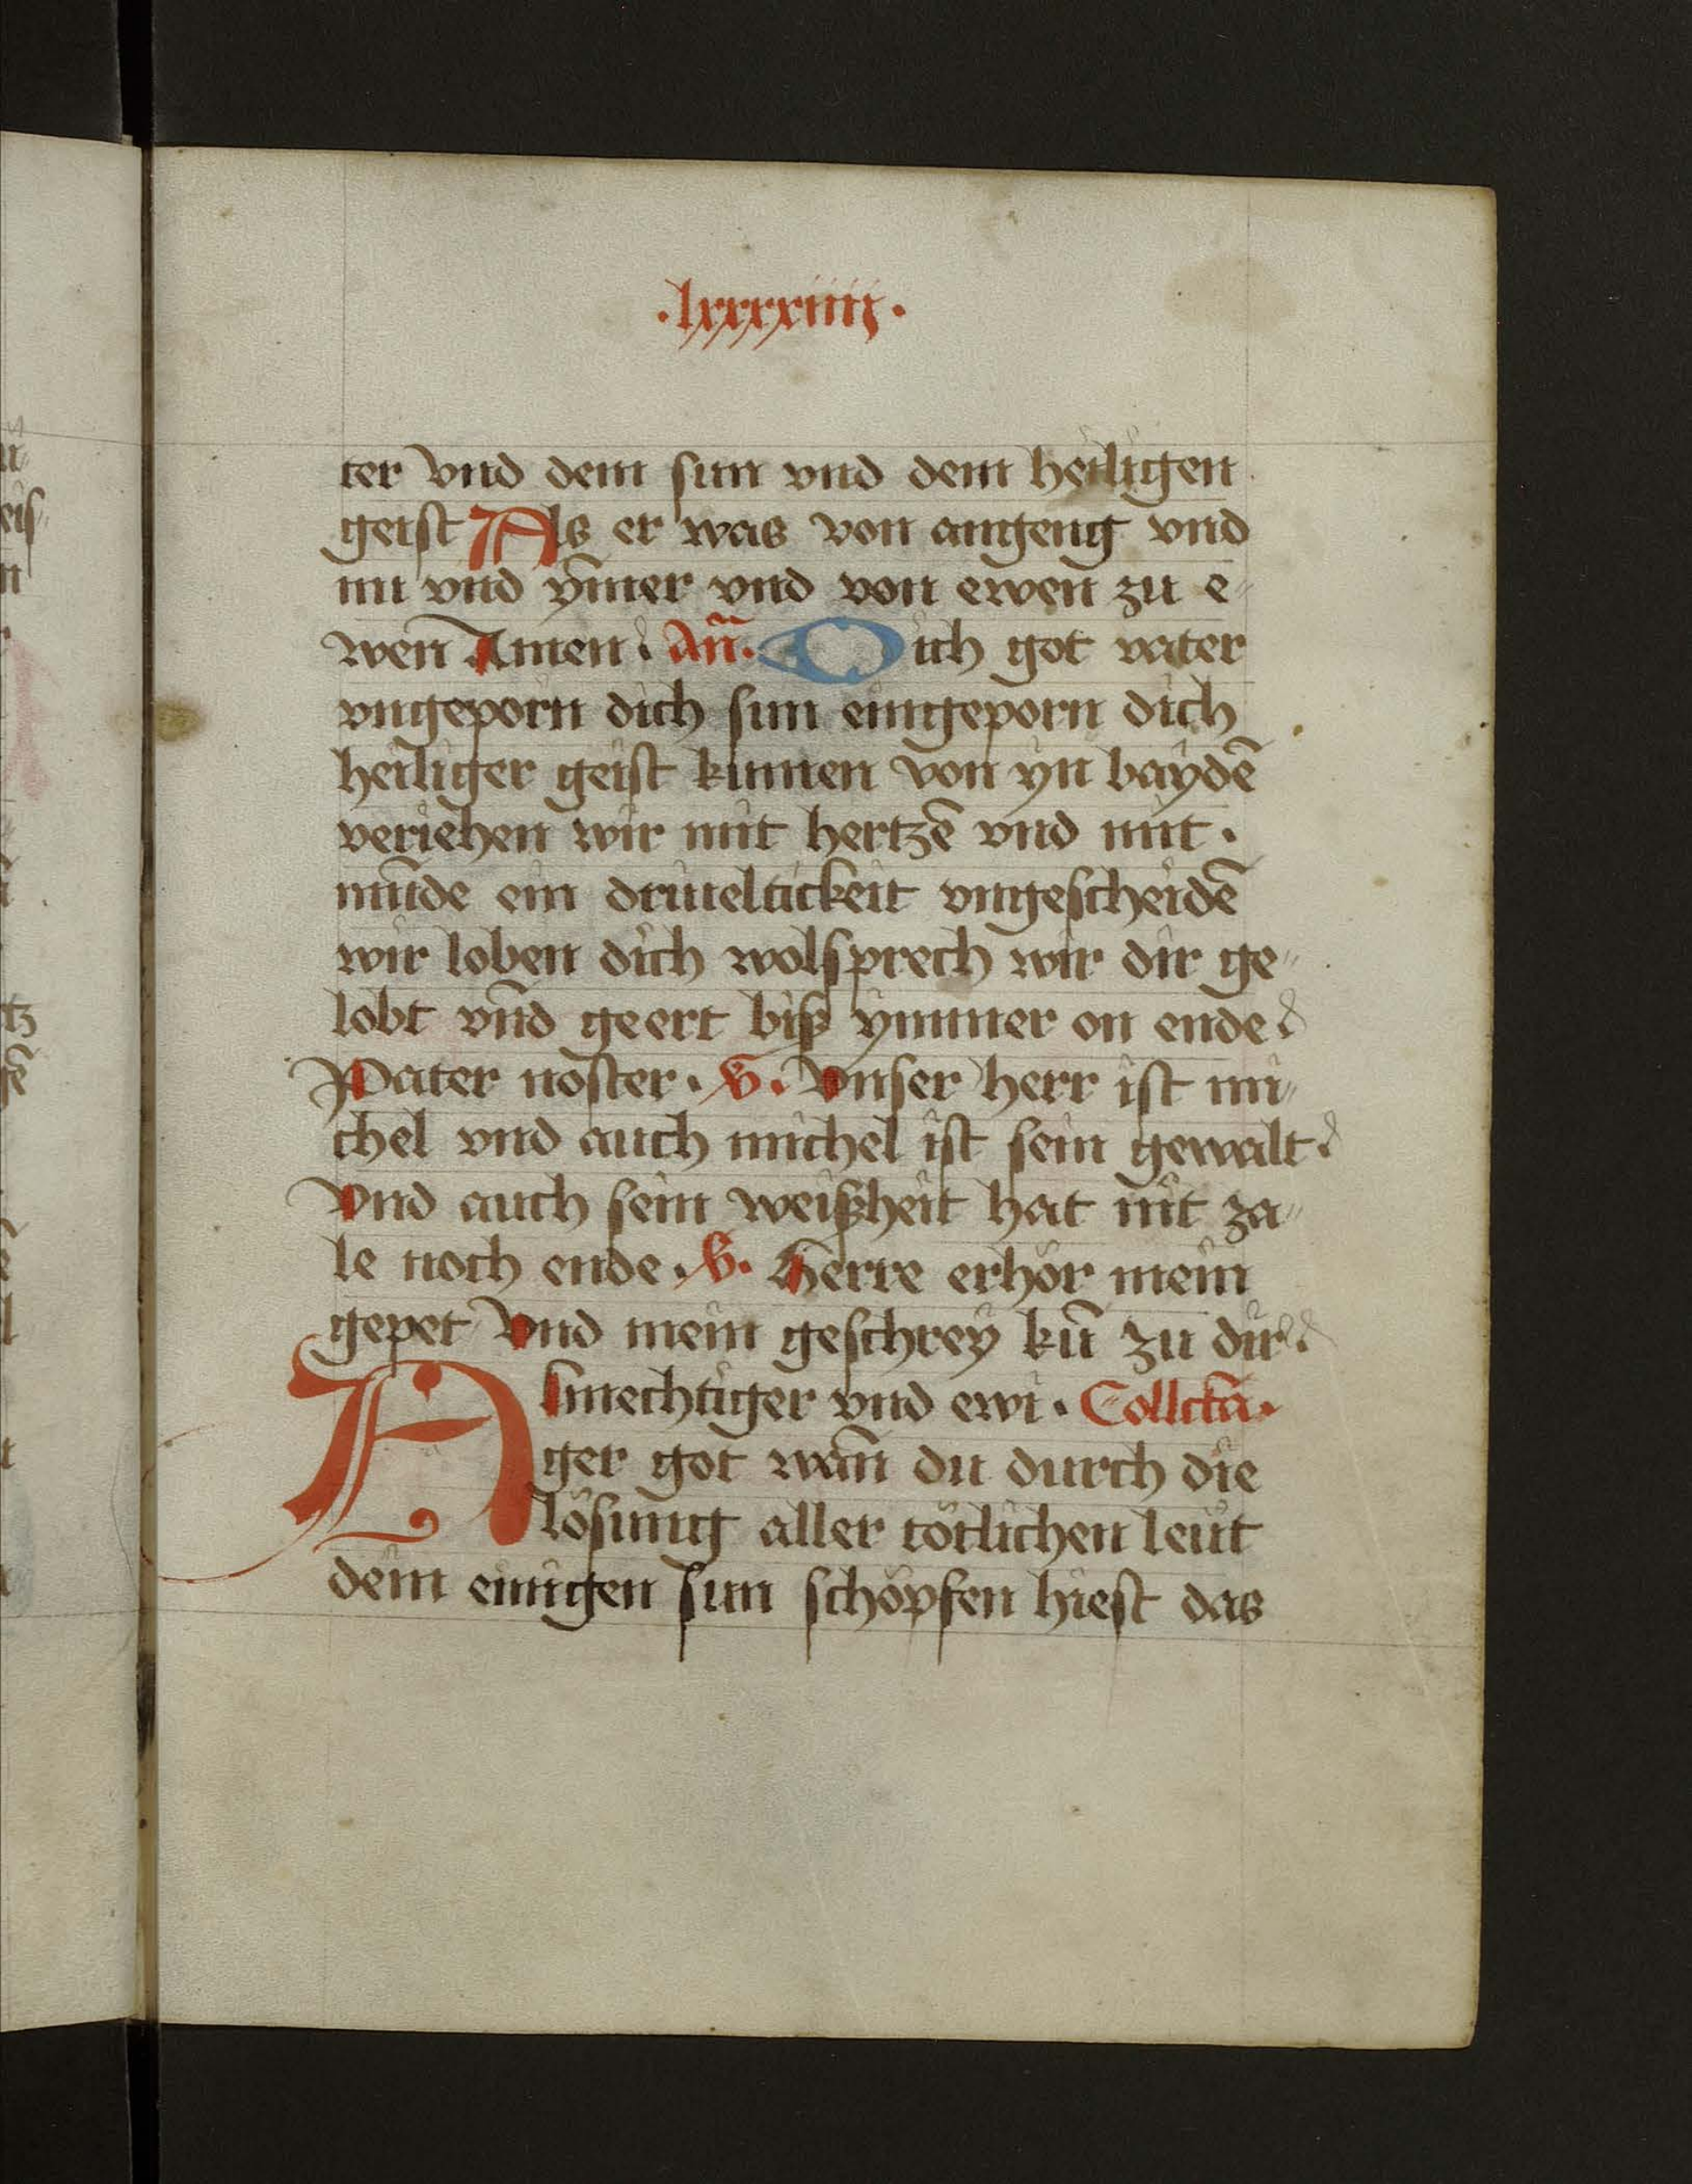 ·lxxxxiiij·
ter vnd dem sun vnd dem heiligen
geist Als er was von angeng vnd
nu vnd ym̄er vnd von ewen zu e„
wen Amen. Añ. Dich got vater
vngeporn dich sun eingeporn dich
heiliger geist kumen von yn baydē
veriehen wir mit hertzē vnd mit.
mūde ein driueltickeit vngescheidē
wir loben dich wolsprech wir dir ge„
lobt vnd geert biß ymmer on ende
Pater noster. V. Vnser herr ist mi„
chel vnd auch michel ist sein gewalt.
Vnd auch sein weißheit hat nit za„
le noch ende. V. Herre erhör mein
gepet Vnd mein geschrey kū zu dir.
Almechtiger vnd ewi. Collctā.
ger got wan̄ du durch die
lösung aller tötlichen leüt
dem einigen sun schöpfen hiest das